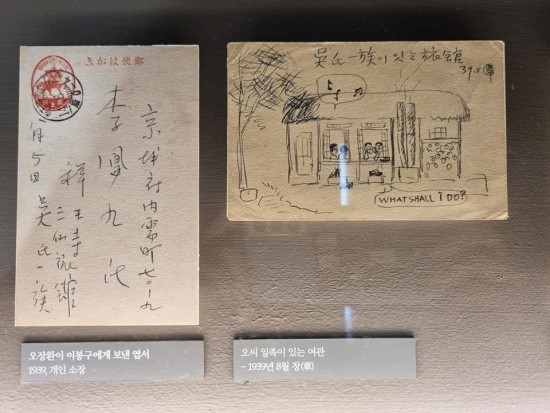 郵便はがき
京城府内需町七〇ノ九
李鳳九氏
釋王寺
三仙旅館
吳氏一族
吳氏一族이 있는 旅館
39.8 章
WHAT SHALL I DO?
오장환이 이봉구에게 보낸 엽서
1939, 개인 소장
오씨 일족이 있는 여관
– 1939년 8월 장(章)